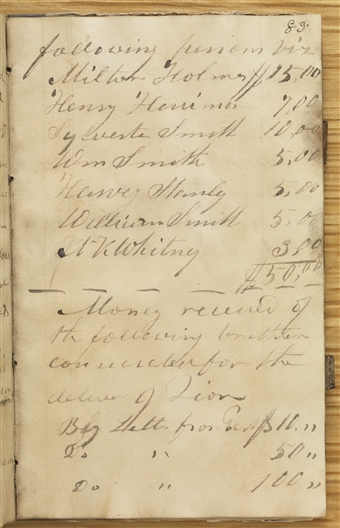 83.
following persons viz
Milton Holmes $15,00
Henry Herriman 7,00
Sylvester Smith 10,00
Wm Smith 5,00
Harvey Stanley 5,00
William Smith 5,00
N K Whitney 3,00
$50,00
Money received of
the following brethren
consecrated for the
deliver of Zion
By Letter from East $10 ,,
Do ,, 50 ,,
Do ,, 100 ,,